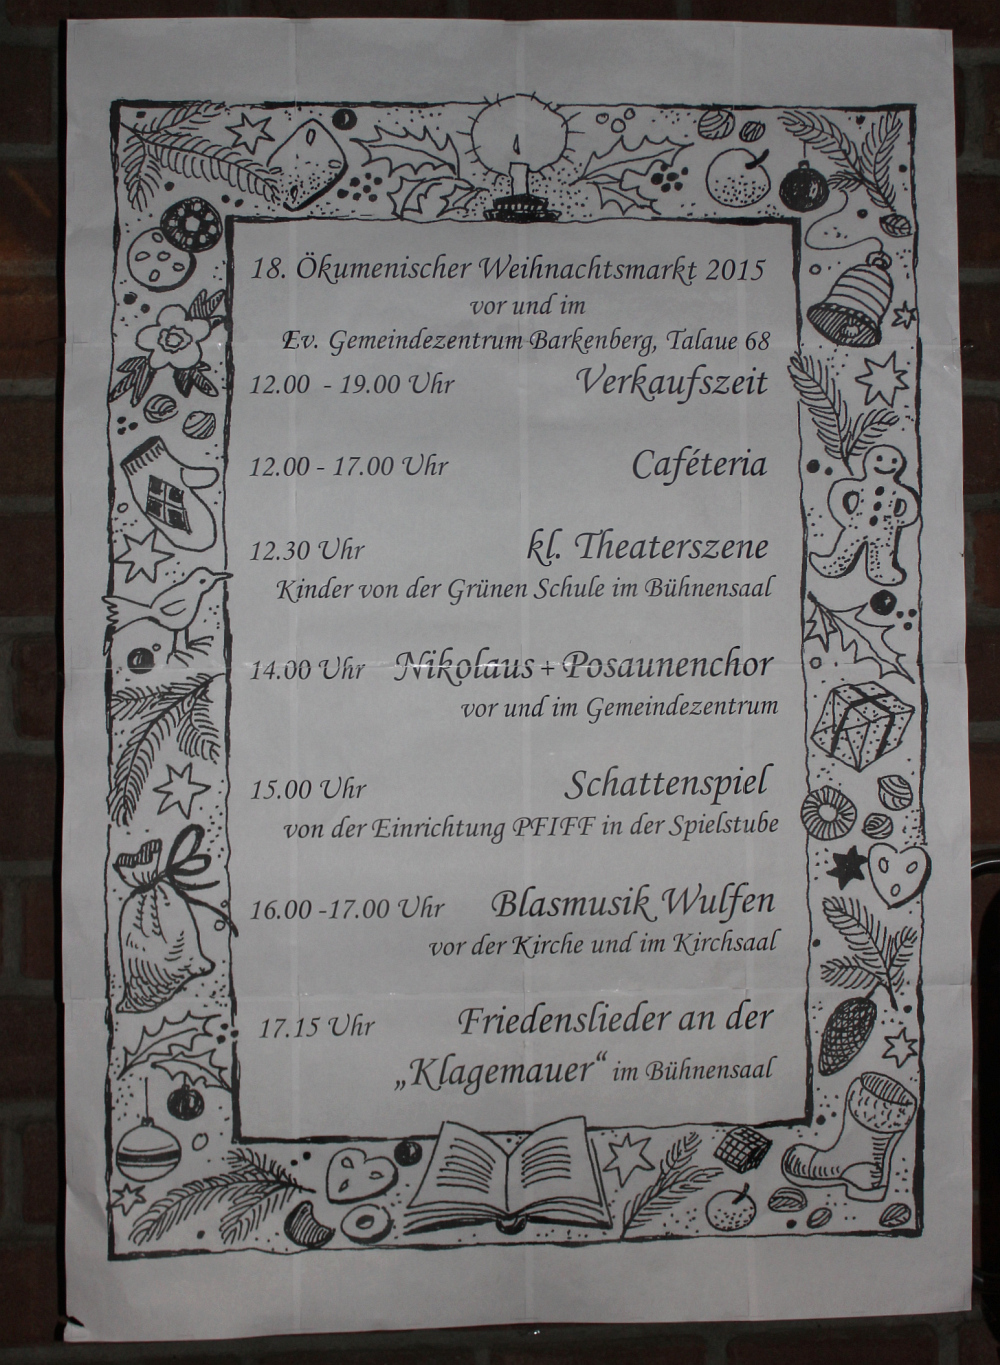 18. Ökumenischer Weihnachtsmarkt 2015
vor und im
Ev. Gemeindezentrum Barkenberg, Talaue 68
12.00 - 19.00 Uhr Verkaufszeit
12.00 - 17.00 Uhr Caféteria
12.30 Uhr kl. Theaterszene
Kinder von der Grünen Schule im Bühnensaal
14.00 Uhr Nikolaus + Posaunenchor
vor und im Gemeindezentrum
15.00 Uhr Schattenspiel
von der Einrichtung PFIFF in der Spielstube
16.00 -17.00 Uhr Blasmusik Wulfen
vor der Kirche und im Kirchsaal
17.15 Uhr Friedenslieder an der
„Klagemauer“ im Bühnensaal